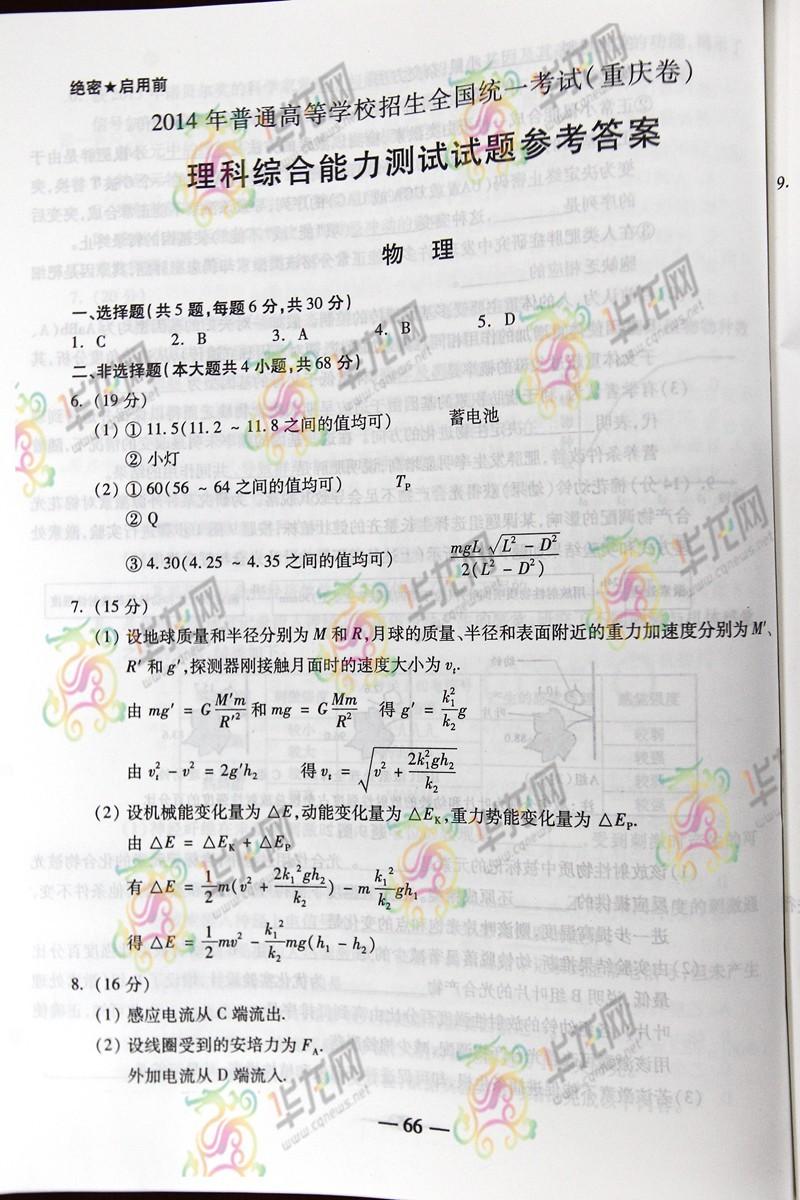 绝密★启用前
2014年普通高等学校招生全国统一考试(重庆卷)
理科综合能力测试试题参考答案
物 理
一、选择题(共5题,每题6分,共30分)
1. C 2. B 3. A 4. B 5. D
二、非选择题(本大题共4小题,共68分)
6. (19分)
(1) ① 11.5(11.2 ~ 11.8之间的值均可) 蓄电池
② 小灯
(2) ① 60(56 ~ 64之间的值均可) T_P
② Q
③ 4.30(4.25 ~ 4.35之间的值均可) mgL√(L² − D²) / 2(L² − D²)
7. (15分)
(1) 设地球质量和半径分别为M和R,月球的质量、半径和表面附近的重力加速度分别为M′、
R′和g′,探测器刚接触月面时的速度大小为v_t.
由 mg′ = G M′m/R′² 和 mg = G Mm/R² 得 g′ = k₁²/k₂ g
由 v_t² − v² = 2g′h₂ 得 v_t = √(v² + 2k₁²gh₂/k₂)
(2) 设机械能变化量为△E,动能变化量为△E_K,重力势能变化量为△E_P.
由 △E = △E_K + △E_P
有 △E = 1/2 m(v² + 2k₁²gh₂/k₂) − m k₁²/k₂ gh₁
得 △E = 1/2 mv² − k₁²/k₂ mg(h₁ − h₂)
8. (16分)
(1) 感应电流从C端流出.
(2) 设线圈受到的安培力为F_A.
外加电流从D端流入.
— 66 —
9.
华龙网
www.cqnews.net